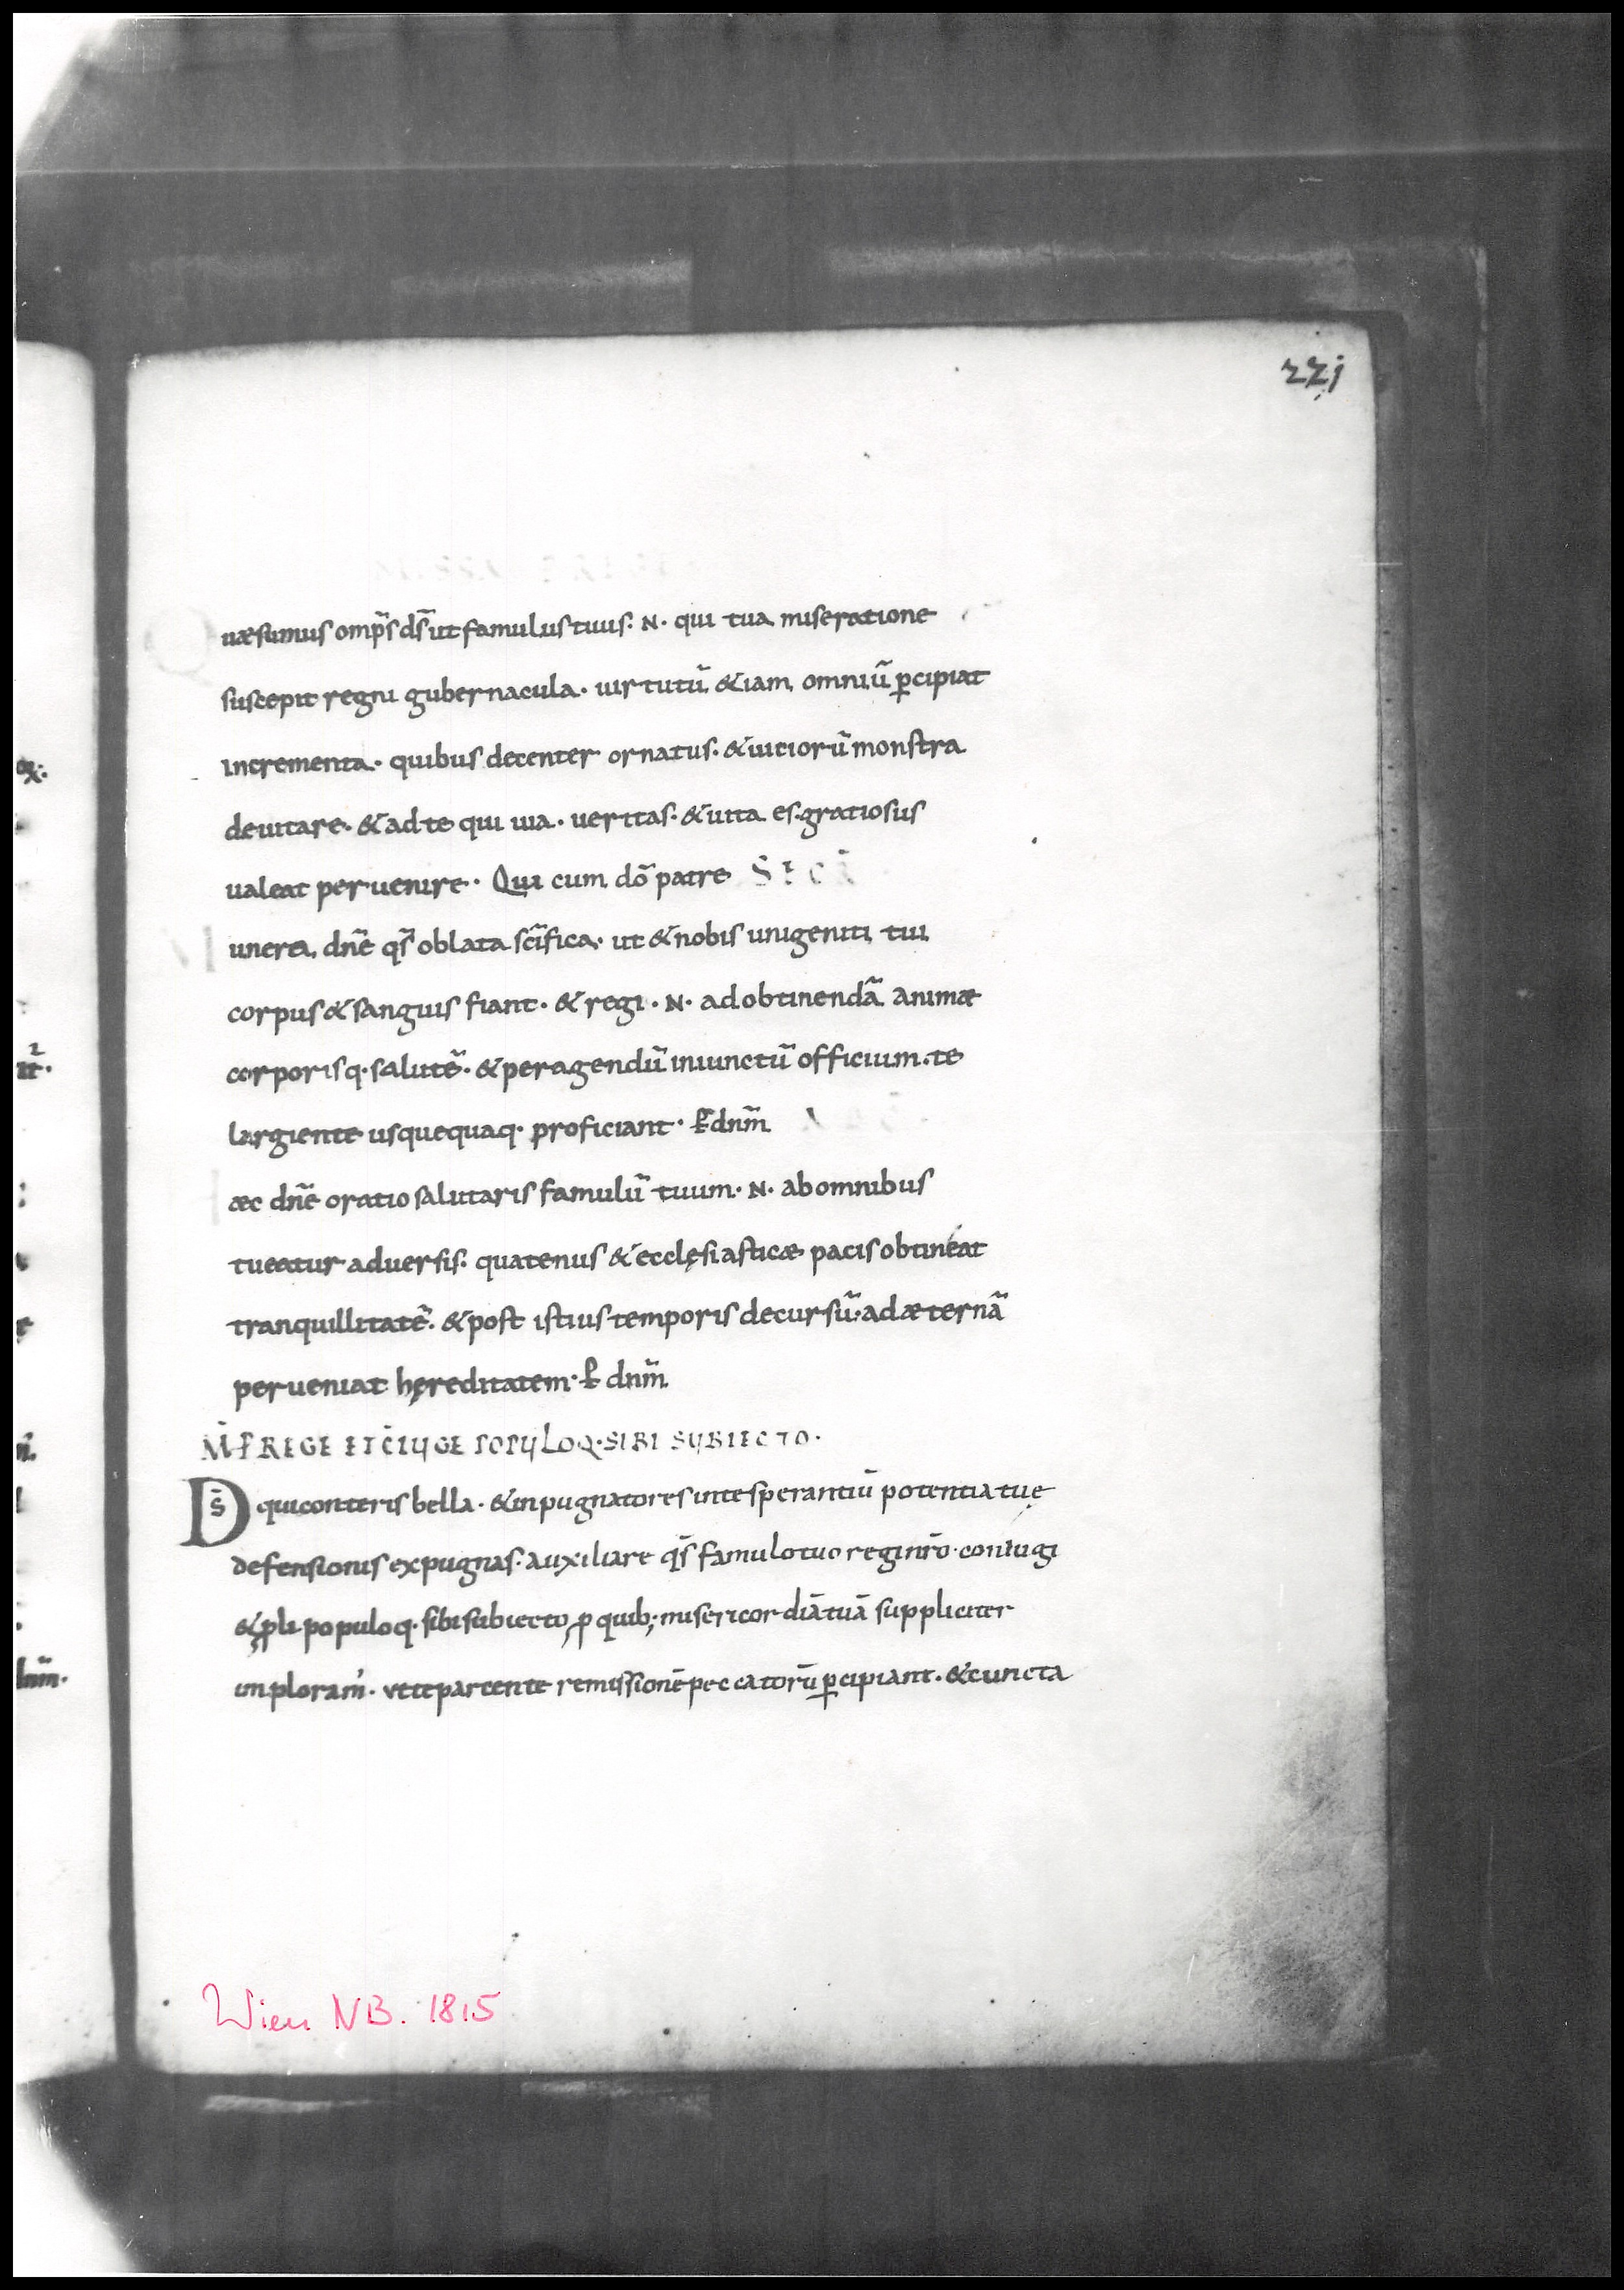 221
Quæsumus omp̄s ds̄ ut famulus tuus· N· qui tua miseratione
suscepit regni gubernacula· uirtutū &iam omniū p̄cipiat
incrementa· quibus decenter ornatus· & uitiorū monstra
deuitare· & ad te qui uia· ueritas· & uita es· gratiosus
ualeat peruenire· Qui cum dō patre SECR̄
Munera dnē qs̄ oblata scīfica· ut & nobis unigeniti tui
corpus & sanguis fiant· & regi· N· ad obtinendā animæ
corporisq· salutē· & peragendū iniunctū officium· te
largiente usquequaq· proficiant· P̄ dnm̄
Hæc dnē oratio salutaris famulū tuum· N· ab omnibus
tueatur aduersis· quatenus & ecclęsiasticæ pacis obtineat
tranquillitatē· & post istius temporis decursū· ad æternā
perueniat hęreditatem· P̄ dnm̄
M̄ P̄ REGE ET C̄IUGE POPULOQ· SIBI SUBIECTO·
Ds̄ qui conteris bella· & inpugnatores in te sperantiū potentia tuę
defensionis expugnas· auxiliare qs̄ famulo tuo regi nr̄o· coniugi
& ꝓli· populoq· sibi subiecto, ꝓ quib; misericordiā tuā suppliciter
imploram'· ut te parcente remissionē peccatorū p̄cipiant· & cuncta
ox·
n̄t·
dnm̄·
Wien NB. 1815